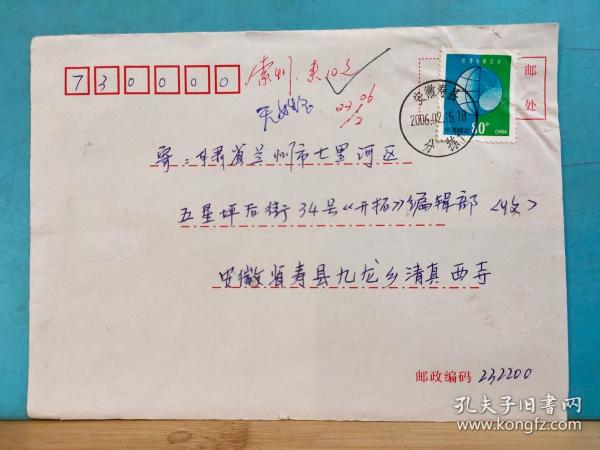 730000
索刊
贴邮
票处
安徽寿县
2006.02.15.18
80分
CHINA
寄:甘肃省兰州市七里河区
五星坪后街34号《开拓》编辑部(收)
安徽省寿县九龙乡清真西寺
邮政编码 232200
孔夫子旧书网
www.kongfz.com